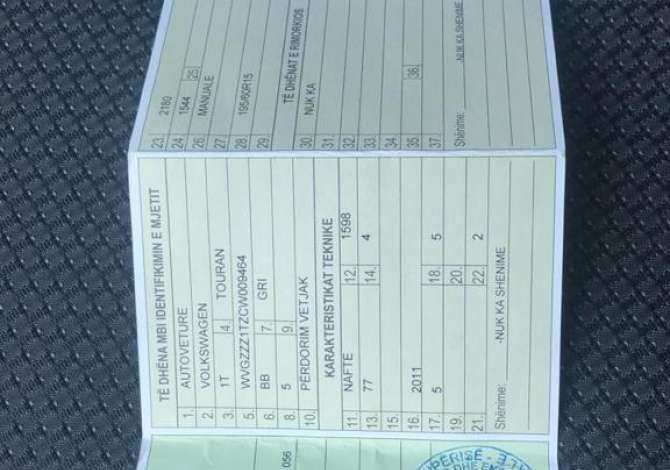 TË DHËNA MBI IDENTIFIKIMIN E MJETIT
1. AUTOVETURE
2. VOLKSWAGEN
3. 1T 4. TOURAN
5. WVGZZZ1TZCW009464
6. BB 7. GRI
8. 5 9.
10. PËRDORIM VETJAK
KARAKTERISTIKAT TEKNIKE
11. NAFTË 12. 1598
13. 77 14. 4
15.
16. 2011
17. 5 18. 5
19. 20.
21. 22. 2
Shënime: -NUK KA SHENIME
23. 2180
24. 1544 25
26. MANUALE
27.
28. 195/60R15
29.
TË DHËNAT E RIMORKIOS
30. NUK KA
31.
32.
33.
34.
35. 36.
37.
Shënime: -NUK KA SHENIME
056